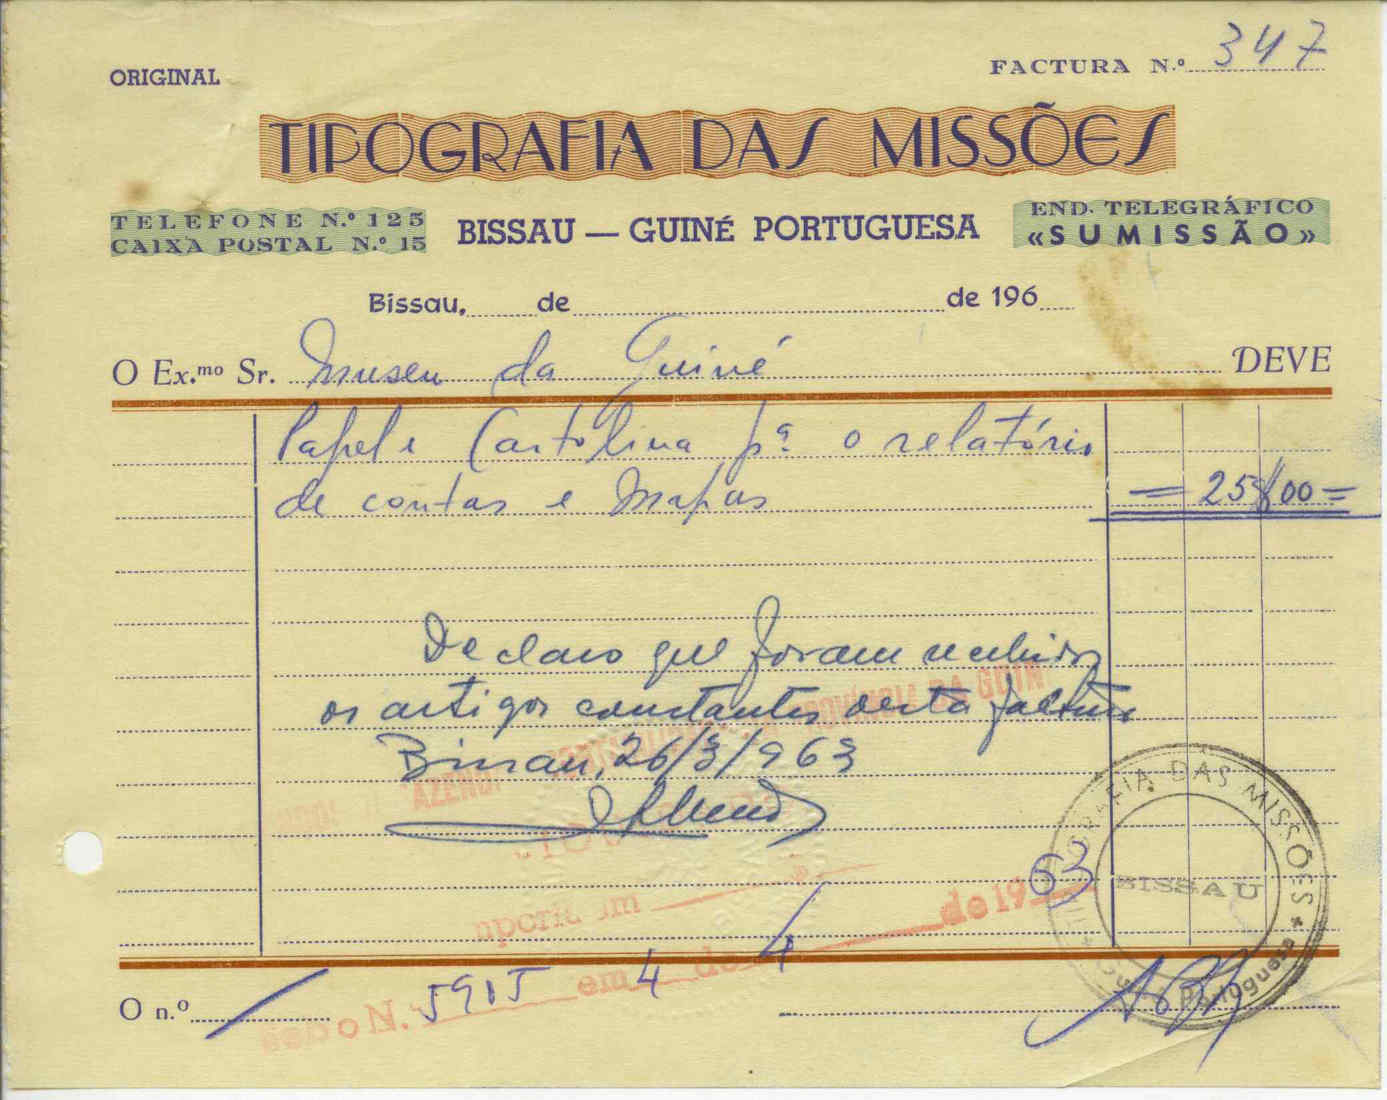 ORIGINAL
FACTURA N.º 347
TIPOGRAFIA DAS MISSÕES
TELEFONE N.º 125
CAIXA POSTAL N.º 15
BISSAU — GUINÉ PORTUGUESA
END. TELEGRÁFICO
«SUMISSÃO»
Bissau, de de 196
O Ex.mo Sr. Museu da Guiné DEVE
Papel e Cartolina pª o relatório
de contas e Mapas = 25$00 =
Declaro que foram recebidos
os artigos constantes desta factura
Bissau, 26/3/963
PROVÍNCIA DA GUIN
de 1963
em 4 de 4
5915
O n.º
TIPOGRAFIA DAS MISSÕES
BISSAU
Guiné Portuguesa